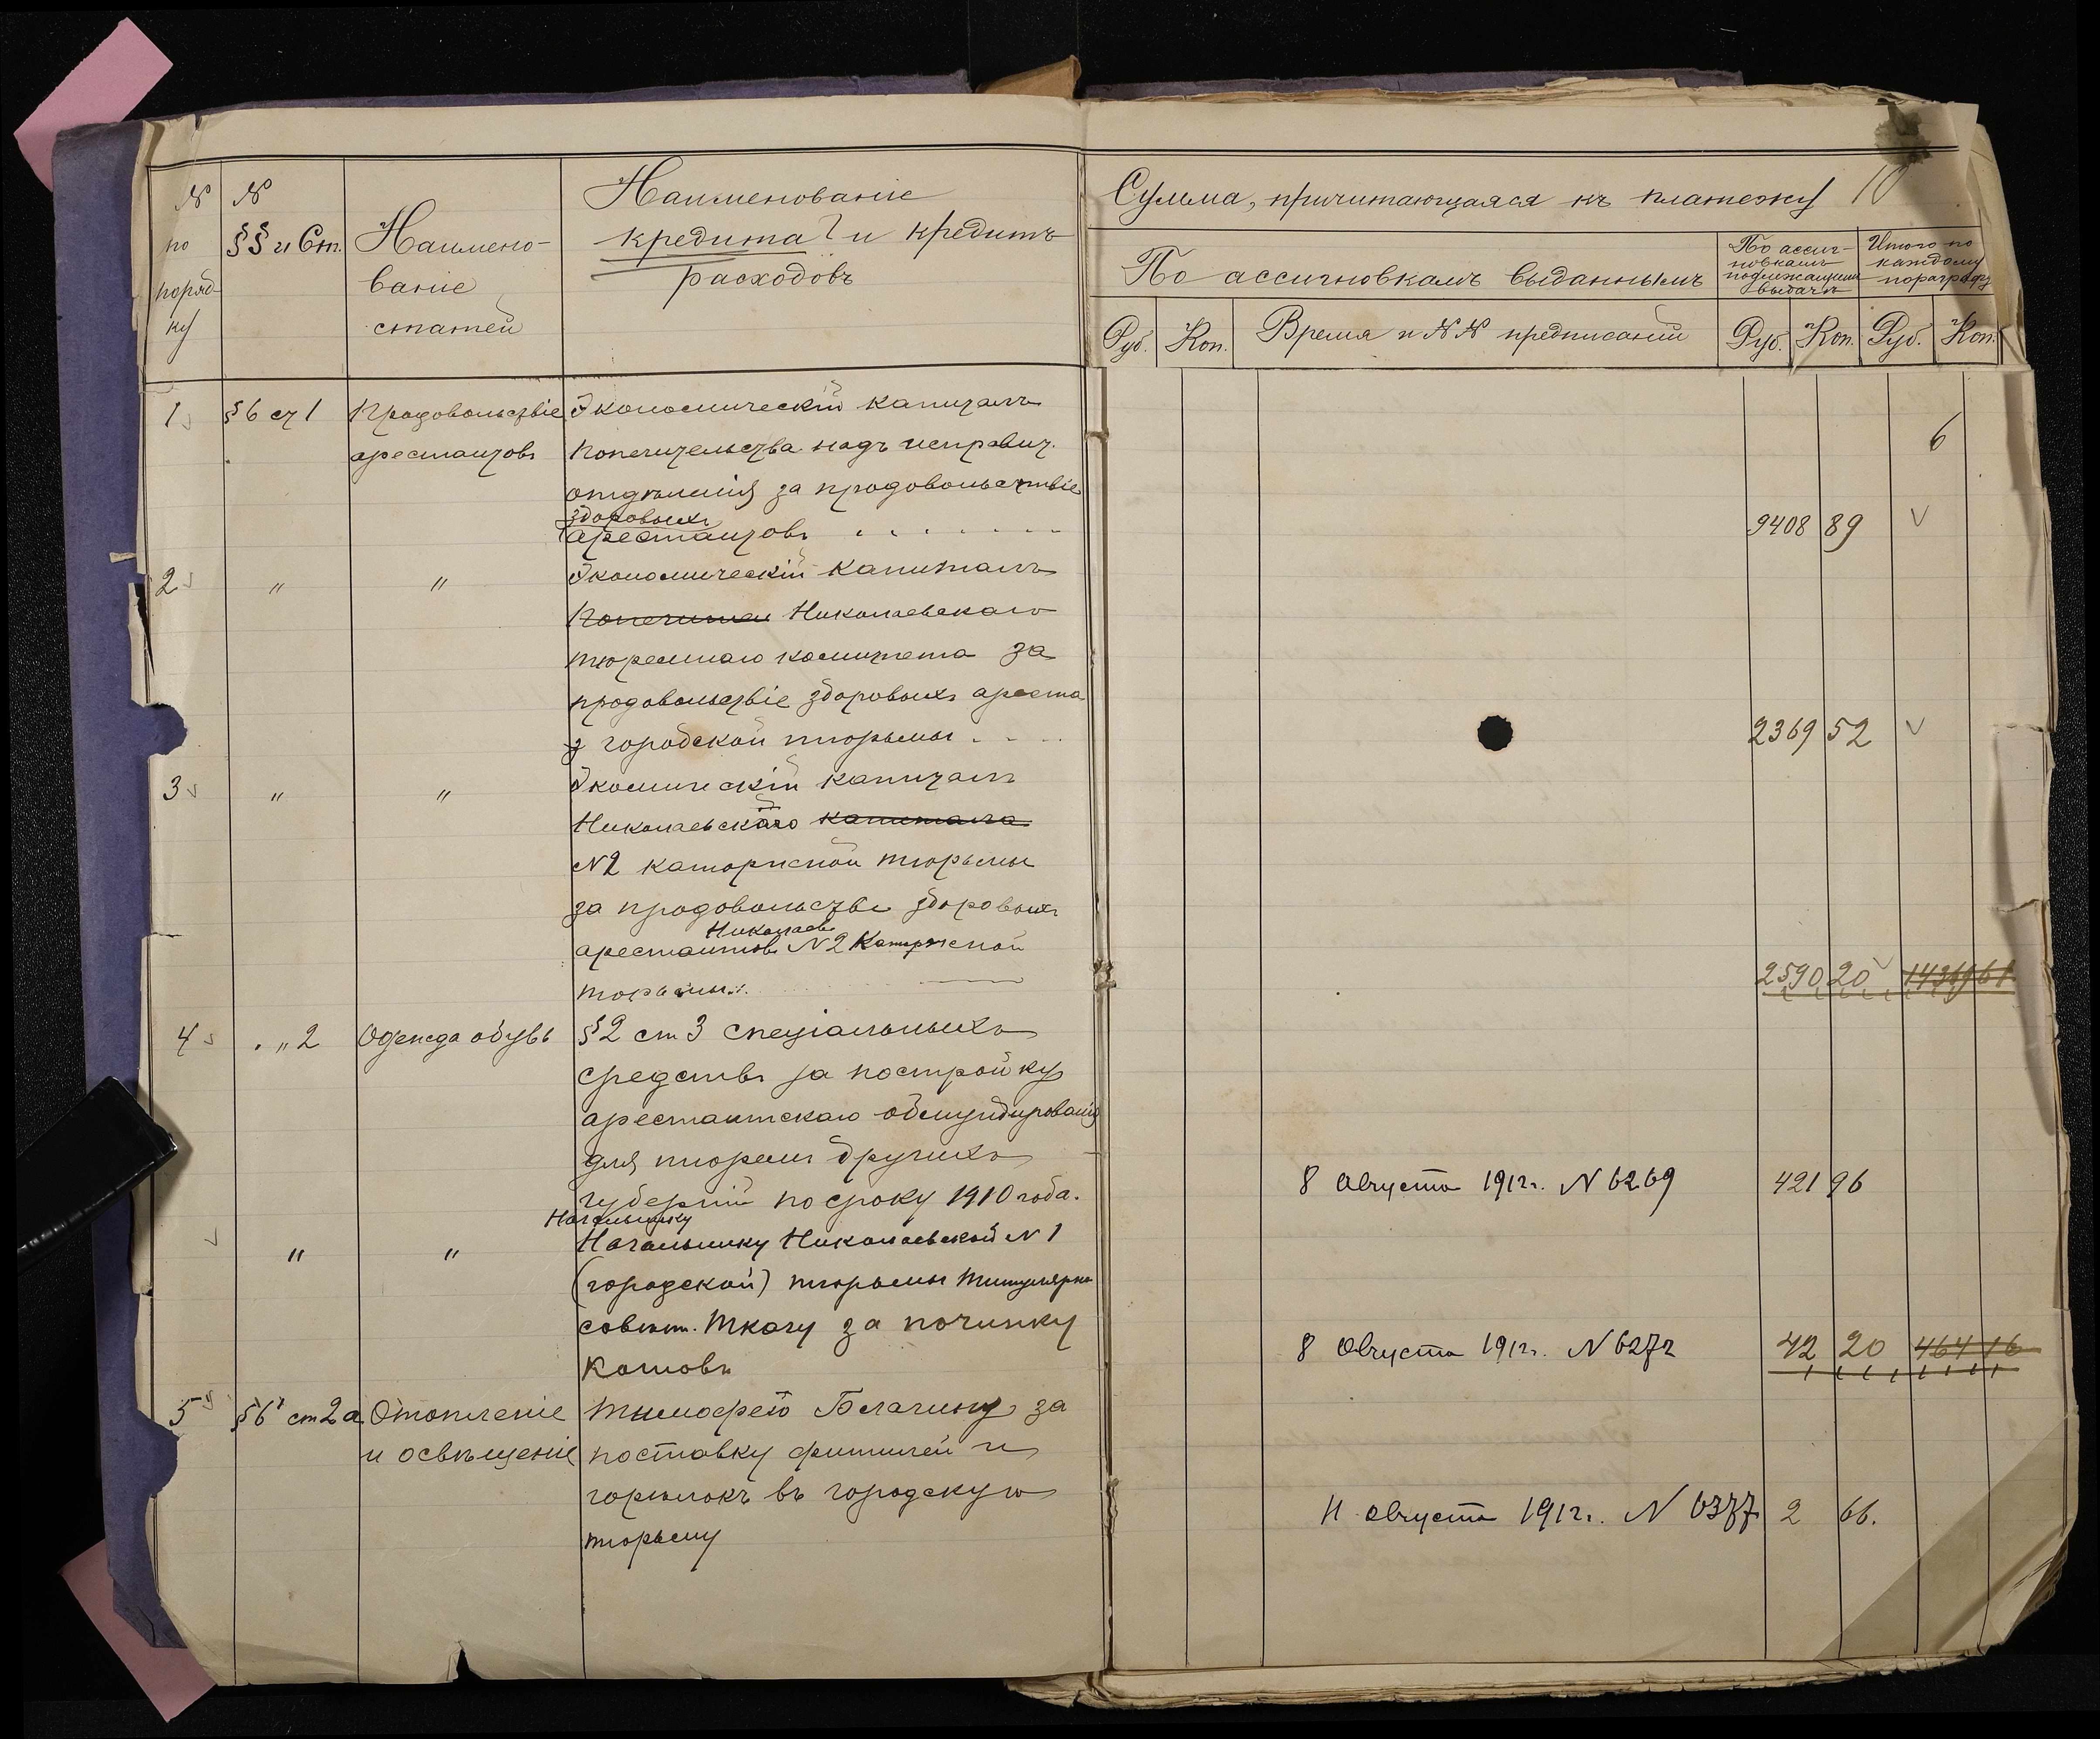 № по поряд- ку
№ §§ и Ст.
Наимено-
ваніе
статей
Наименованіе
кредита и кредитъ
расходовъ
Сумма, причитающаяся къ платежу 10
По ассигновкамъ выданнымъ
По ассиг-
новкамъ
подлежащимъ
выдачѣ
Итого по
каждому
пораграфу
Руб. Коп. Время и №№ предписаній Руб. Коп. Руб. Коп.
1 §6 ст 1 Продовольствіе Экономическій капиталъ
6
арестантовъ попечительства надъ исправит.
отдѣленія за продовольствіе
здоровыхъ
арестантовъ 9408 89
2 " " Экономическій капиталъ
Попечител Николаевскаго
тюремнаго комитета за
продовольствіе здоровыхъ ареста
городской тюрьмы 2369 52
3 " " Экомическій капиталъ
Николаевской капитала
№2 каторжной тюрьмы
за продовольстве здоровыхъ
Николаев
арестантовъ №2 Каторжной
2590 20 14369 61
тюрьмы
4 " 2 Одежда обувь §2 ст 3 спеціальныхъ
средствъ за постройку
арестантскаго обмундированія
для тюремъ другихъ
губерній по сроку 1910 года. 8 Августа 1912г. № 6269 421 96
Начальнику
" " Начальнику Николаевской №1
(городской) тюрьмы Титулярн
совѣтн. Ткачу за починку
котовъ 8 Августа 1912г. № 6272 42 20 464 16
5 §6 ст 2 а Отопленіе Тимофею Благину за
и освѣщеніе поставку фитилей и
горѣлокъ въ городскую
11 Августа 1912г. № 6377 2 66.
тюрьму